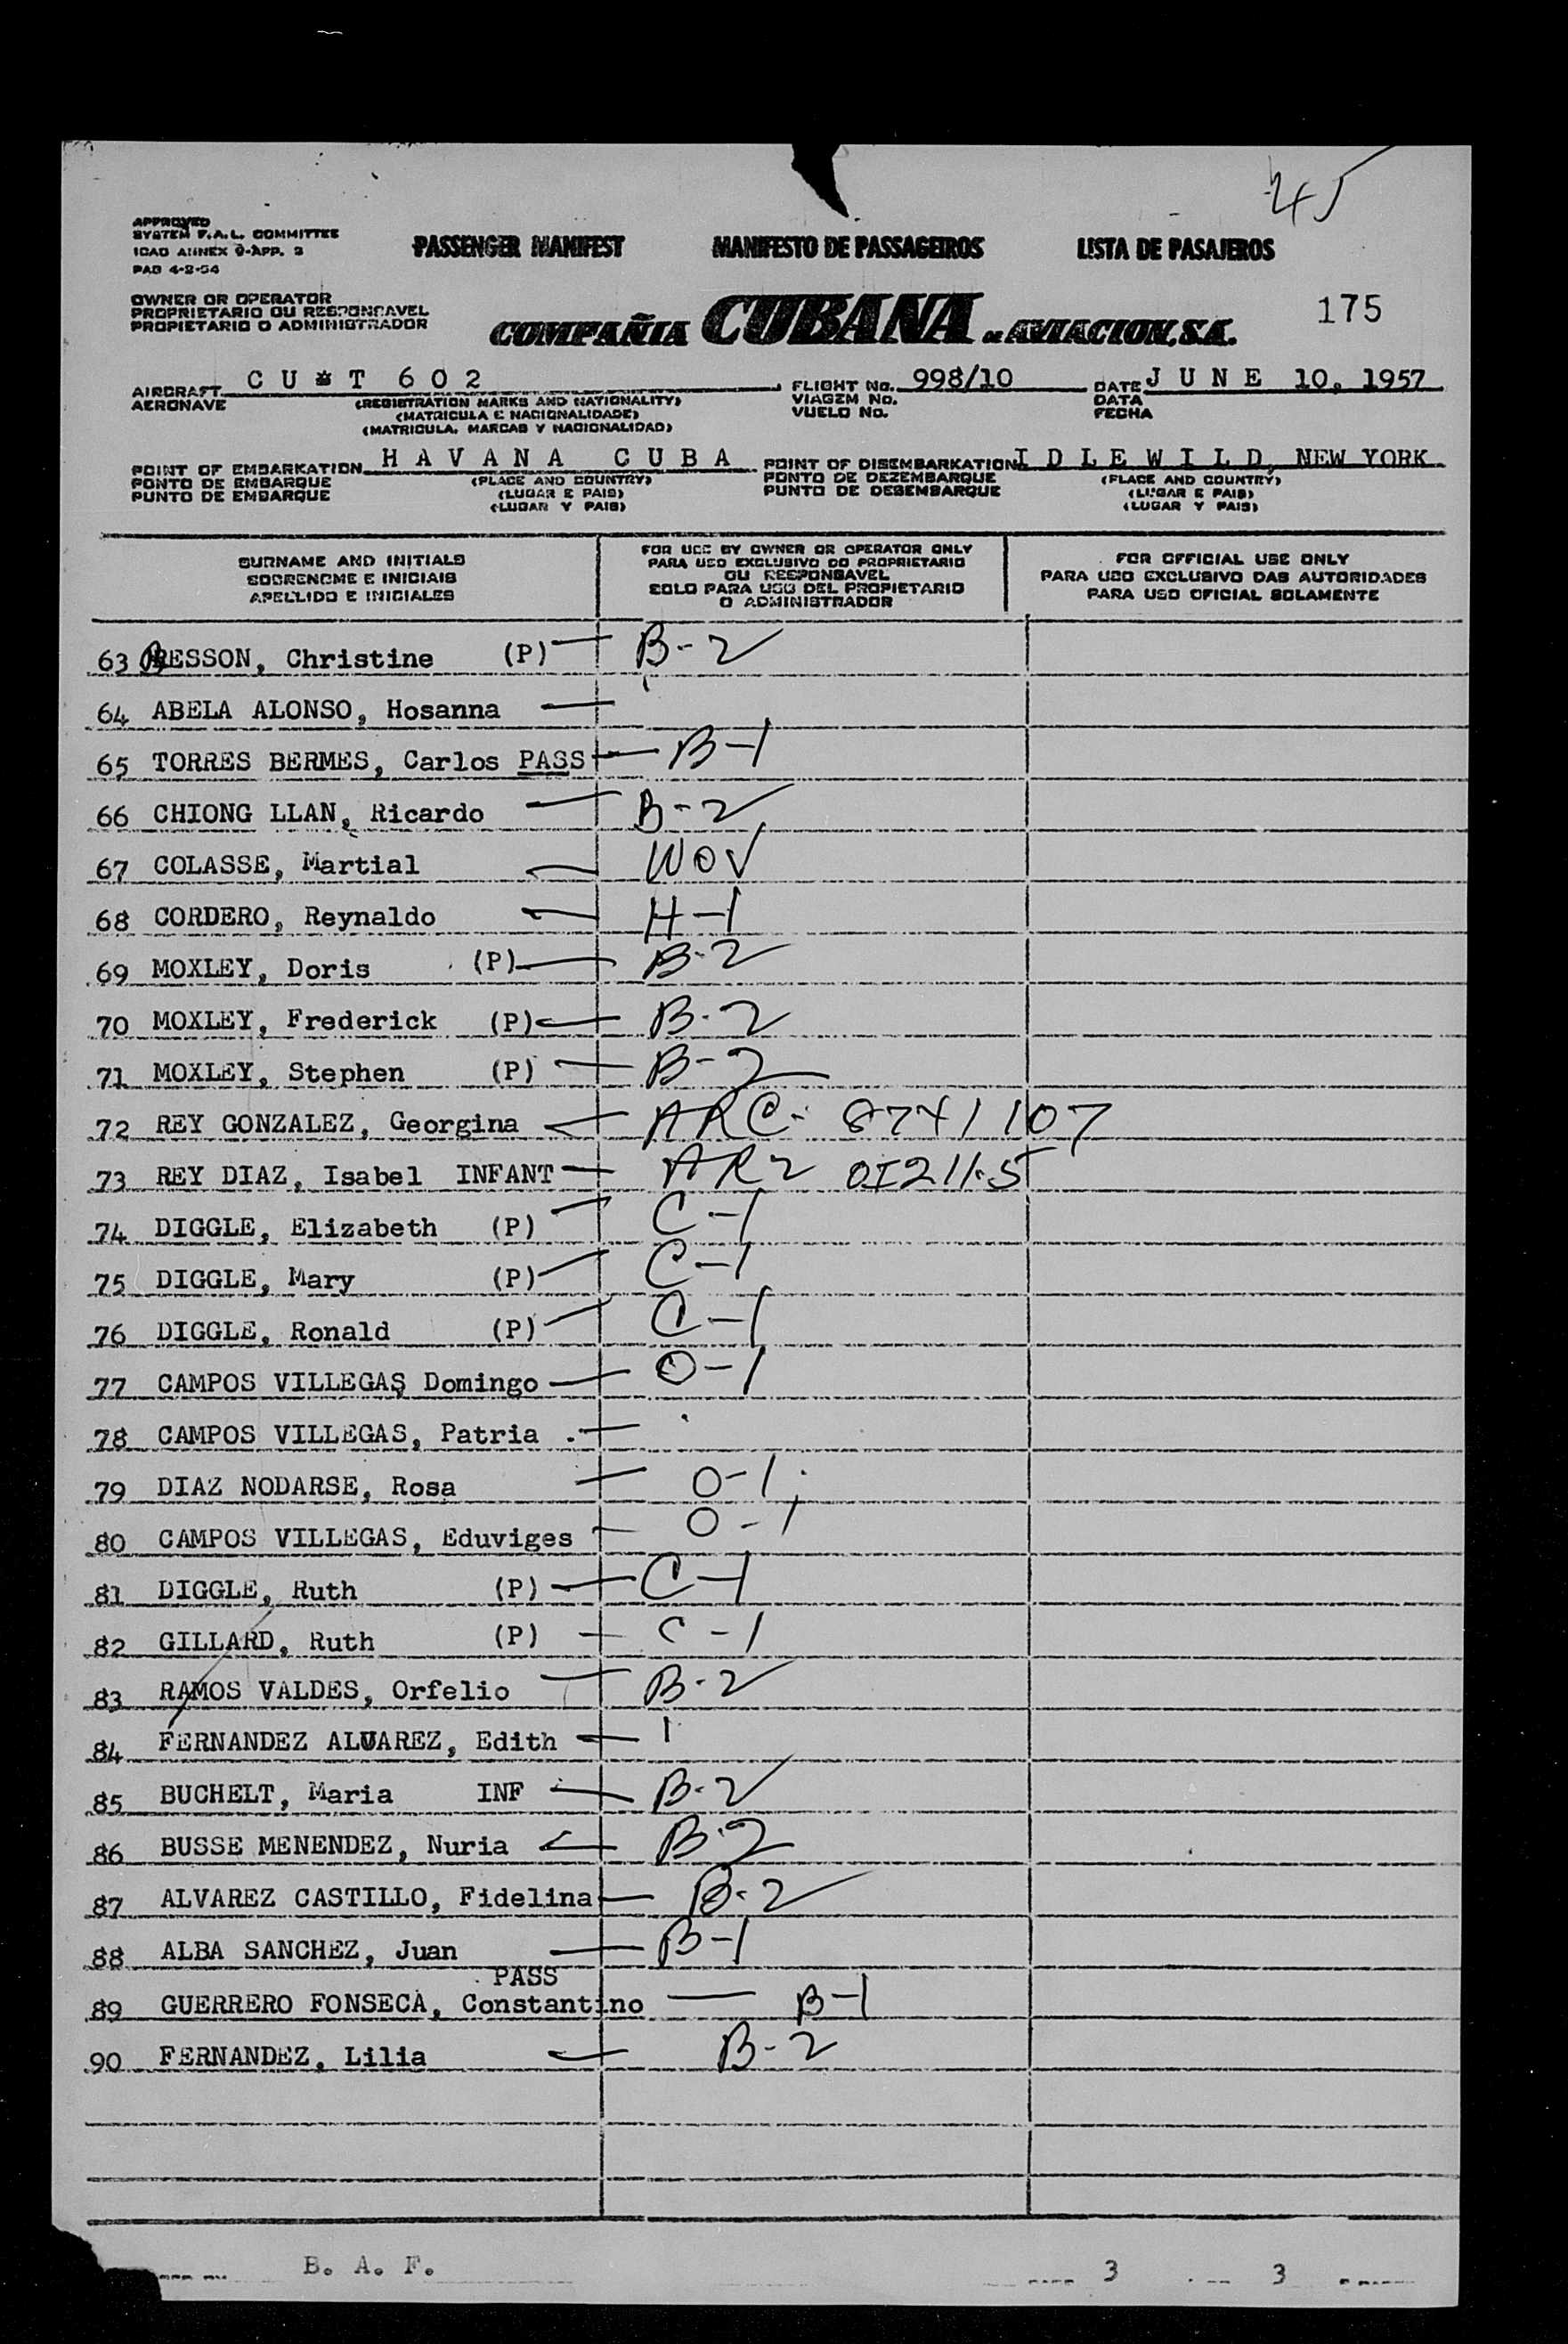 45
APPROVED
SYSTEM F.A.L. COMMITTEE
ICAO ANNEX 9-APP. 3
PAD 4-2-54
PASSENGER MANIFEST MANIFESTO DE PASSAGEIROS LISTA DE PASAJEROS
OWNER OR OPERATOR
PROPRIETARIO OU RESPONSAVEL
PROPIETARIO O ADMINISTRADOR
COMPAÑIA CUBANA DE AVIACION, S.A.
175
AIRCRAFT CU T 602 FLIGHT No. 998/10 DATE JUNE 10, 1957
AERONAVE (REGISTRATION MARKS AND NATIONALITY) VIAGEM No. DATA
(MATRICULA E NACIONALIDADE) VUELO No. FECHA
(MATRICULA, MARCAS Y NACIONALIDAD)
POINT OF EMBARKATION HAVANA CUBA POINT OF DISEMBARKATION IDLEWILD, NEW YORK
PONTO DE EMBARQUE (PLACE AND COUNTRY) PONTO DE DEZEMBARQUE (PLACE AND COUNTRY)
PUNTO DE EMBARQUE (LUGAR E PAIS) PUNTO DE DESEMBARQUE (LUGAR E PAIS)
(LUGAR Y PAIS) (LUGAR Y PAIS)
SURNAME AND INITIALS
SOBRENOME E INICIAIS
APELLIDO E INICIALES
FOR USE BY OWNER OR OPERATOR ONLY
PARA USO EXCLUSIVO DO PROPRIETARIO
OU RESPONSAVEL
SOLO PARA USO DEL PROPIETARIO
O ADMINISTRADOR
FOR OFFICIAL USE ONLY
PARA USO EXCLUSIVO DAS AUTORIDADES
PARA USO OFICIAL SOLAMENTE
63 BRESSON, Christine (P) B-2
64 ABELA ALONSO, Hosanna
65 TORRES BERMES, Carlos PASS B-1
66 CHIONG LLAN, Ricardo B-2
67 COLASSE, Martial WOV
68 CORDERO, Reynaldo H-1
69 MOXLEY, Doris (P) B-2
70 MOXLEY, Frederick (P) B-2
71 MOXLEY, Stephen (P) B-2
72 REY GONZALEZ, Georgina ARC- 8741107
73 REY DIAZ, Isabel INFANT
74 DIGGLE, Elizabeth (P) C-1
75 DIGGLE, Mary (P) C-1
76 DIGGLE, Ronald (P) C-1
77 CAMPOS VILLEGAS Domingo O-1
78 CAMPOS VILLEGAS, Patria
79 DIAZ NODARSE, Rosa O-1
80 CAMPOS VILLEGAS, Eduviges O-1
81 DIGGLE, Ruth (P) C-1
82 GILLARD, Ruth (P) C-1
83 RAMOS VALDES, Orfelio B-2
84 FERNANDEZ ALVAREZ, Edith
85 BUCHELT, Maria INF B-2
86 BUSSE MENENDEZ, Nuria B-2
87 ALVAREZ CASTILLO, Fidelina B-2
88 ALBA SANCHEZ, Juan B-1
PASS
89 GUERRERO FONSECA, Constantino B-1
90 FERNANDEZ, Lilia B-2
B. A. F. 3 3